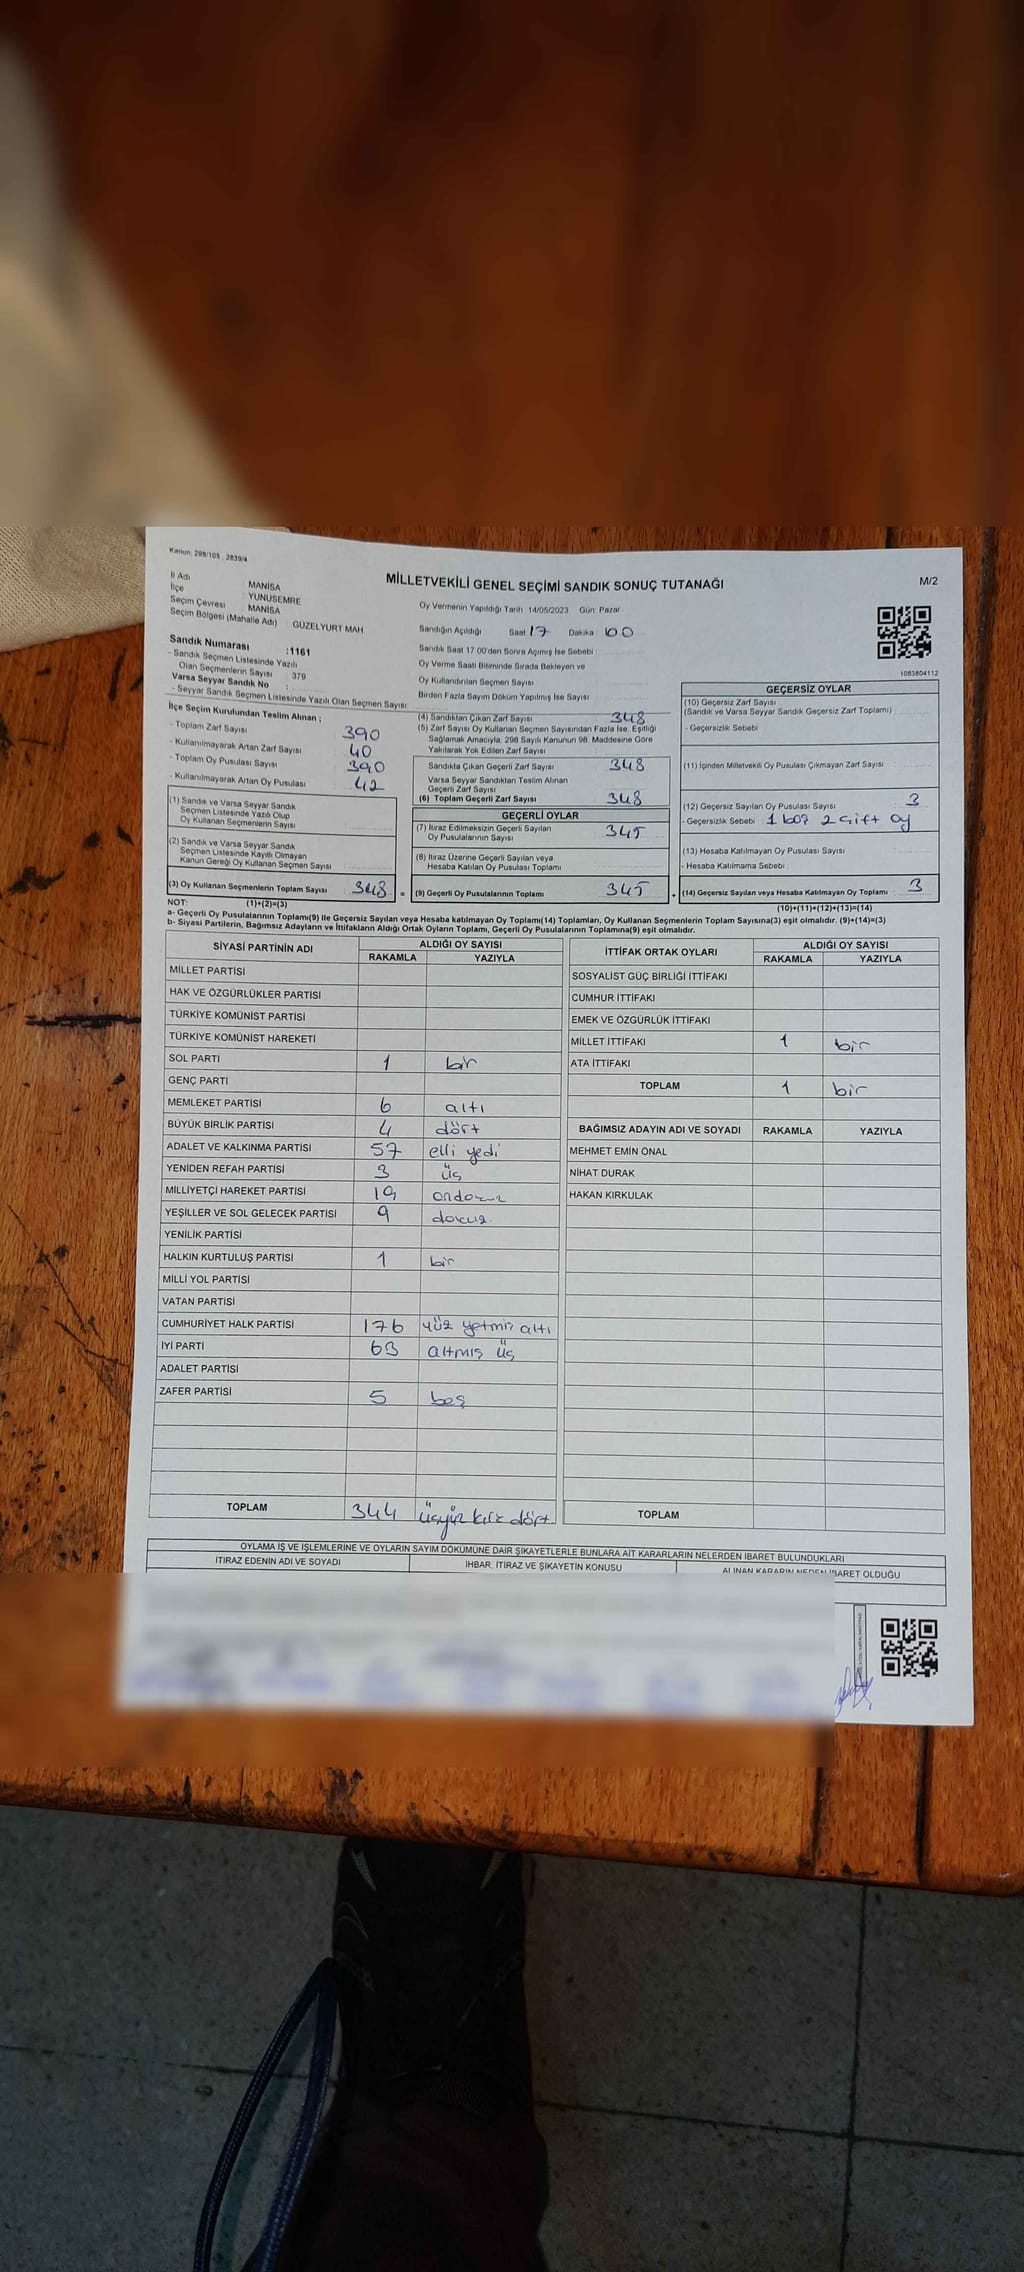 Kanun: 298/105 - 2839/4
MİLLETVEKİLİ GENEL SEÇİMİ SANDIK SONUÇ TUTANAĞI
M/2
İl Adı : MANİSA
İlçe : YUNUSEMRE
Seçim Çevresi : MANİSA
Seçim Bölgesi (Mahalle Adı) : GÜZELYURT MAH
Oy Vermenin Yapıldığı Tarih 14/05/2023 Gün: Pazar
Sandığın Açıldığı Saat 17 Dakika 00
Sandık Saat 17.00'den Sonra Açılmış İse Sebebi
Oy Verme Saati Bitiminde Sırada Bekleyen ve
Oy Kullandırılan Seçmen Sayısı
Birden Fazla Sayım Döküm Yapılmış İse Sayısı
1083804112
Sandık Numarası :1161
- Sandık Seçmen Listesinde Yazılı
Olan Seçmenlerin Sayısı : 379
Varsa Seyyar Sandık No :
- Seyyar Sandık Seçmen Listesinde Yazılı Olan Seçmen Sayısı:
İlçe Seçim Kurulundan Teslim Alınan ;
- Toplam Zarf Sayısı 390
- Kullanılmayarak Artan Zarf Sayısı 40
- Toplam Oy Pusulası Sayısı 390
- Kullanılmayarak Artan Oy Pusulası 42
(1) Sandık ve Varsa Seyyar Sandık
Seçmen Listesinde Yazılı Olup
Oy Kullanan Seçmenlerin Sayısı
(2) Sandık ve Varsa Seyyar Sandık
Seçmen Listesinde Kayıtlı Olmayan
Kanun Gereği Oy Kullanan Seçmen Sayısı
(3) Oy Kullanan Seçmenlerin Toplam Sayısı 348 =
(4) Sandıktan Çıkan Zarf Sayısı 348
(5) Zarf Sayısı Oy Kullanan Seçmen Sayısından Fazla İse, Eşitliği
Sağlamak Amacıyla; 298 Sayılı Kanunun 98. Maddesine Göre
Yakılarak Yok Edilen Zarf Sayısı
Sandıkta Çıkan Geçerli Zarf Sayısı 348
Varsa Seyyar Sandıktan Teslim Alınan
Geçerli Zarf Sayısı
(6) Toplam Geçerli Zarf Sayısı 348
GEÇERLİ OYLAR
(7) İtiraz Edilmeksizin Geçerli Sayılan
Oy Pusulalarının Sayısı 345
(8) İtiraz Üzerine Geçerli Sayılan veya
Hesaba Katılan Oy Pusulası Toplamı
(9) Geçerli Oy Pusulalarının Toplamı 345 +
GEÇERSİZ OYLAR
(10) Geçersiz Zarf Sayısı
(Sandık ve Varsa Seyyar Sandık Geçersiz Zarf Toplamı)
- Geçersizlik Sebebi
(11) İçinden Milletvekili Oy Pusulası Çıkmayan Zarf Sayısı
(12) Geçersiz Sayılan Oy Pusulası Sayısı 3
- Geçersizlik Sebebi 1 boş 2 çift oy
(13) Hesaba Katılmayan Oy Pusulası Sayısı
- Hesaba Katılmama Sebebi
(14) Geçersiz Sayılan veya Hesaba Katılmayan Oy Toplamı 3
NOT: (1)+(2)=(3)
(10)+(11)+(12)+(13)=(14)
a- Geçerli Oy Pusulalarının Toplamı(9) ile Geçersiz Sayılan veya Hesaba katılmayan Oy Toplamı(14) Toplamları, Oy Kullanan Seçmenlerin Toplam Sayısına(3) eşit olmalıdır. (9)+(14)=(3)
b- Siyasi Partilerin, Bağımsız Adayların ve İttifakların Aldığı Ortak Oyların Toplamı, Geçerli Oy Pusulalarının Toplamına(9) eşit olmalıdır.
SİYASİ PARTİNİN ADI ALDIĞI OY SAYISI
RAKAMLA YAZIYLA
MİLLET PARTİSİ
HAK VE ÖZGÜRLÜKLER PARTİSİ
TÜRKİYE KOMÜNİST PARTİSİ
TÜRKİYE KOMÜNİST HAREKETİ
SOL PARTİ 1 bir
GENÇ PARTİ
MEMLEKET PARTİSİ 6 altı
BÜYÜK BİRLİK PARTİSİ 4 dört
ADALET VE KALKINMA PARTİSİ 57 elli yedi
YENİDEN REFAH PARTİSİ 3 üç
MİLLİYETÇİ HAREKET PARTİSİ 19 ondokuz
YEŞİLLER VE SOL GELECEK PARTİSİ 9 dokuz
YENİLİK PARTİSİ
HALKIN KURTULUŞ PARTİSİ 1 bir
MİLLİ YOL PARTİSİ
VATAN PARTİSİ
CUMHURİYET HALK PARTİSİ 176 yüz yetmiş altı
İYİ PARTİ 63 altmış üç
ADALET PARTİSİ
ZAFER PARTİSİ 5 beş
TOPLAM 344 üçyüz kırk dört
İTTİFAK ORTAK OYLARI ALDIĞI OY SAYISI
RAKAMLA YAZIYLA
SOSYALİST GÜÇ BİRLİĞİ İTTİFAKI
CUMHUR İTTİFAKI
EMEK VE ÖZGÜRLÜK İTTİFAKI
MİLLET İTTİFAKI 1 bir
ATA İTTİFAKI
TOPLAM 1 bir
BAĞIMSIZ ADAYIN ADI VE SOYADI RAKAMLA YAZIYLA
MEHMET EMİN ÖNAL
NİHAT DURAK
HAKAN KIRKULAK
TOPLAM
OYLAMA İŞ VE İŞLEMLERİNE VE OYLARIN SAYIM DÖKÜMÜNE DAİR ŞİKAYETLERLE BUNLARA AİT KARARLARIN NELERDEN İBARET BULUNDUKLARI
İTİRAZ EDENİN ADI VE SOYADI İHBAR, İTİRAZ VE ŞİKAYETİN KONUSU ALINAN KARARIN NEDEN İBARET OLDUĞU